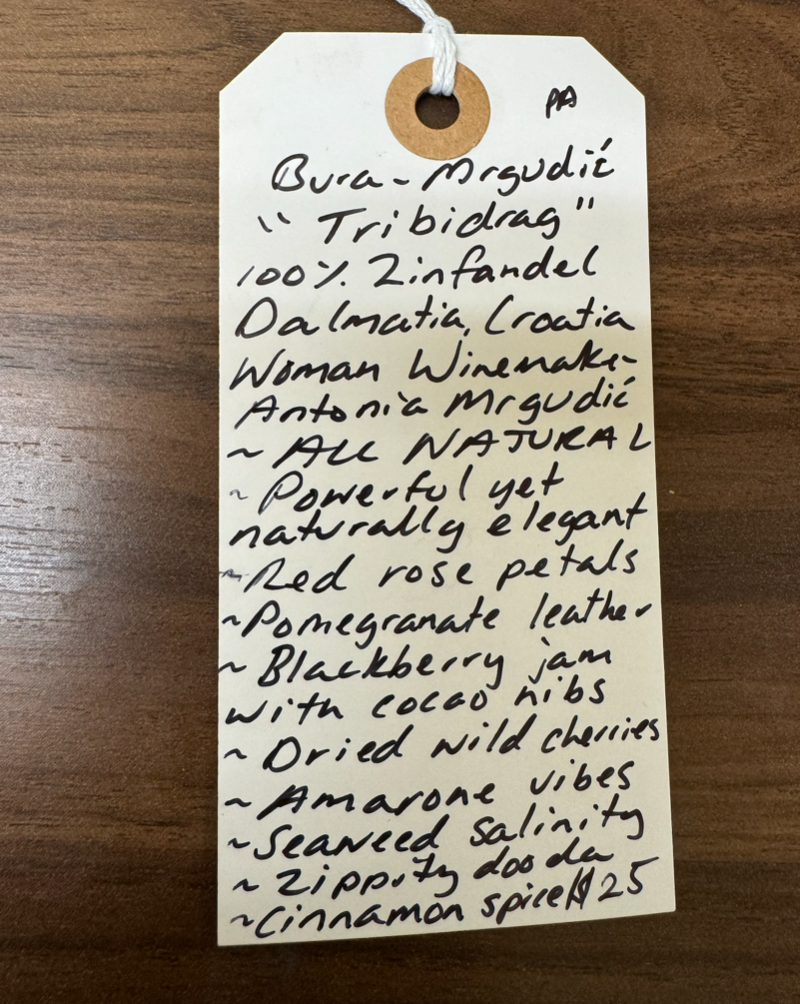 PA
Bura-Mrgudić
"Tribidrag"
100% Zinfandel
Dalmatia, Croatia
Woman Winemaker
Antonia Mrgudić
~ ALL NATURAL
~ Powerful yet
naturally elegant
~ Red rose petals
~ Pomegranate leather
~ Blackberry jam
with cocao nibs
~ Dried wild cherries
~ Amarone vibes
~ Seaweed salinity
~ Zippity doo da
~ Cinnamon spice $25